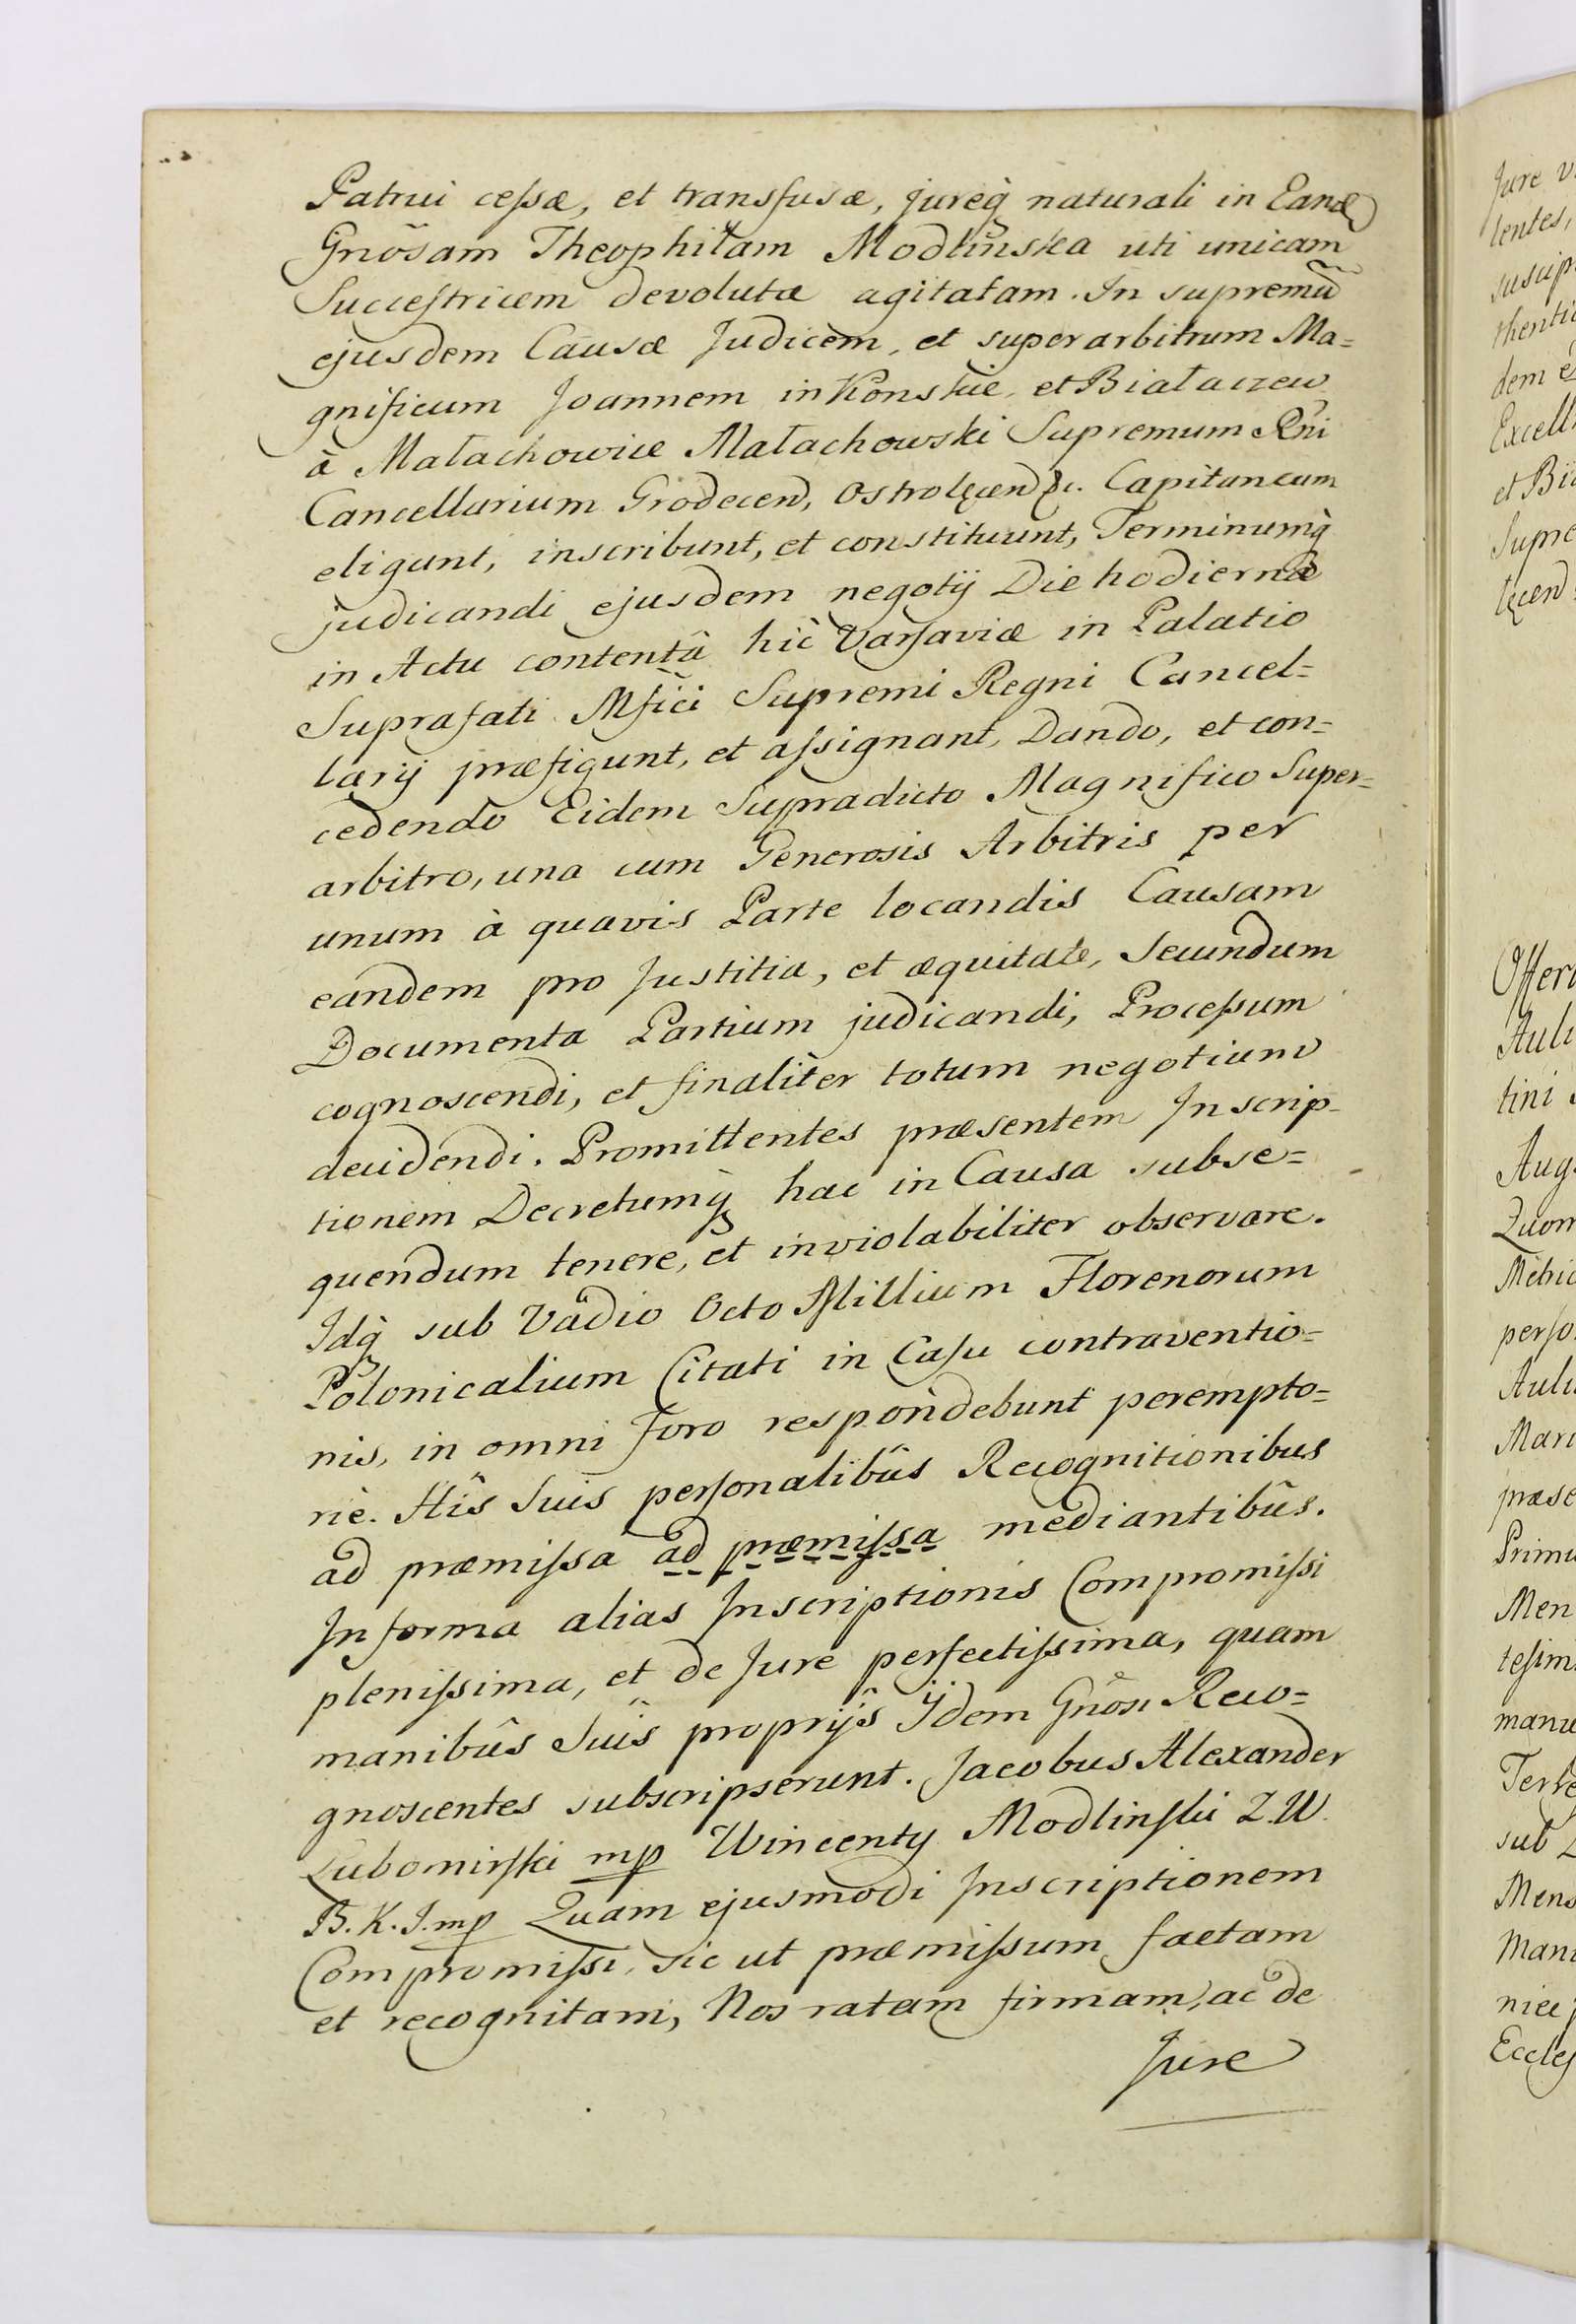 Patrui cessæ, et transfusæ, jureq̀ naturali in Eand
Gnõsam Theophilam Modlińska uti unicam
Successtricem devolutæ agitatam. In supremũ
ejusdem Causæ Judicem, et superarbitrum Ma=
gnificum Joannem in Konskie, et Białaczew
à Małachowice Małachowski Supremum Rñi
Cancellarium Grodecen, Ostrolęcen &c. Capitaneum
eligunt, inscribunt, et constituunt, Terminumq̀
judicandi ejusdem negotij Die hodierna
in Actu contentâ hic Varsaviæ in Palatio
Suprafati Mfici Supremi Regni Cancel=
larij præfigunt, et assignant, Dando, et con=
cedendo Eidem Supradicto Magnifico Super=
arbitro, una cum Generosis Arbitris per
unum à quavis Parte locandis Causam
eandem pro Justitia, et æquitate, Secundum
Documenta Partium judicandi, Processum
cognoscendi, et finaliter totum negotium
decidendi. Promittentes præsentem Inscrip=
tionem Decretumq̀ hac in Causa subse=
quendum tenere, et inviolabiliter observare.
Idq̀ sub Vadio Octo Millium Florenorum
Polonicalium Citati in Casu contraventio=
nis, in omni Foro respondebunt perempto=
rie. Hîs Suis personalibûs Recognitionibus
ad præmissa ad præmissa mediantibûs.
In forma alias Inscriptionis Compromissi
plenissima, et de Jure perfectissima, quam
manibûs Suîs proprijs Ijdem Gñosi Reco=
gnoscentes subscripserunt. Jacobus Alexander
Lubomirski mp Wincenty Modlinski Z.W.
B.K.J.mp Quam ejusmodi Inscriptionem
Compromissi, sic ut præmissum factam
et recognitam, Nos ratam firmam, ac de
Jure